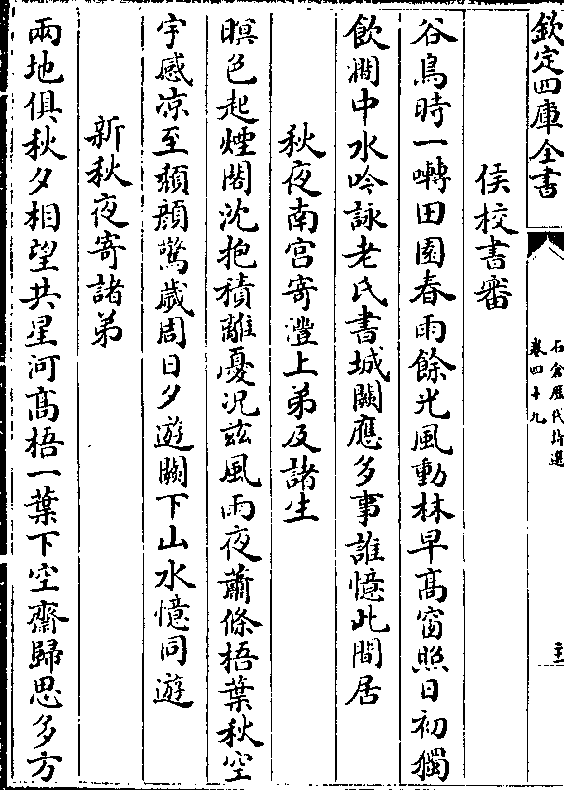 欽定四庫全書
石倉歷代詩選
卷四十九
侯校書審
谷鳥時一囀田園春雨餘光風動林早高窗照日初獨
飲澗中水吟詠老氏書城闕應多事誰憶此閒居
秋夜南宫寄灃上弟及諸生
暝色起煙閣沈抱積離憂況兹風雨夜蕭條梧葉秋空
宇感凉至頽顔驚歲周日夕遊闕下山水憶同遊
新秋夜寄諸弟
兩地俱秋夕相望共星河高梧一葉下空齋歸思多方